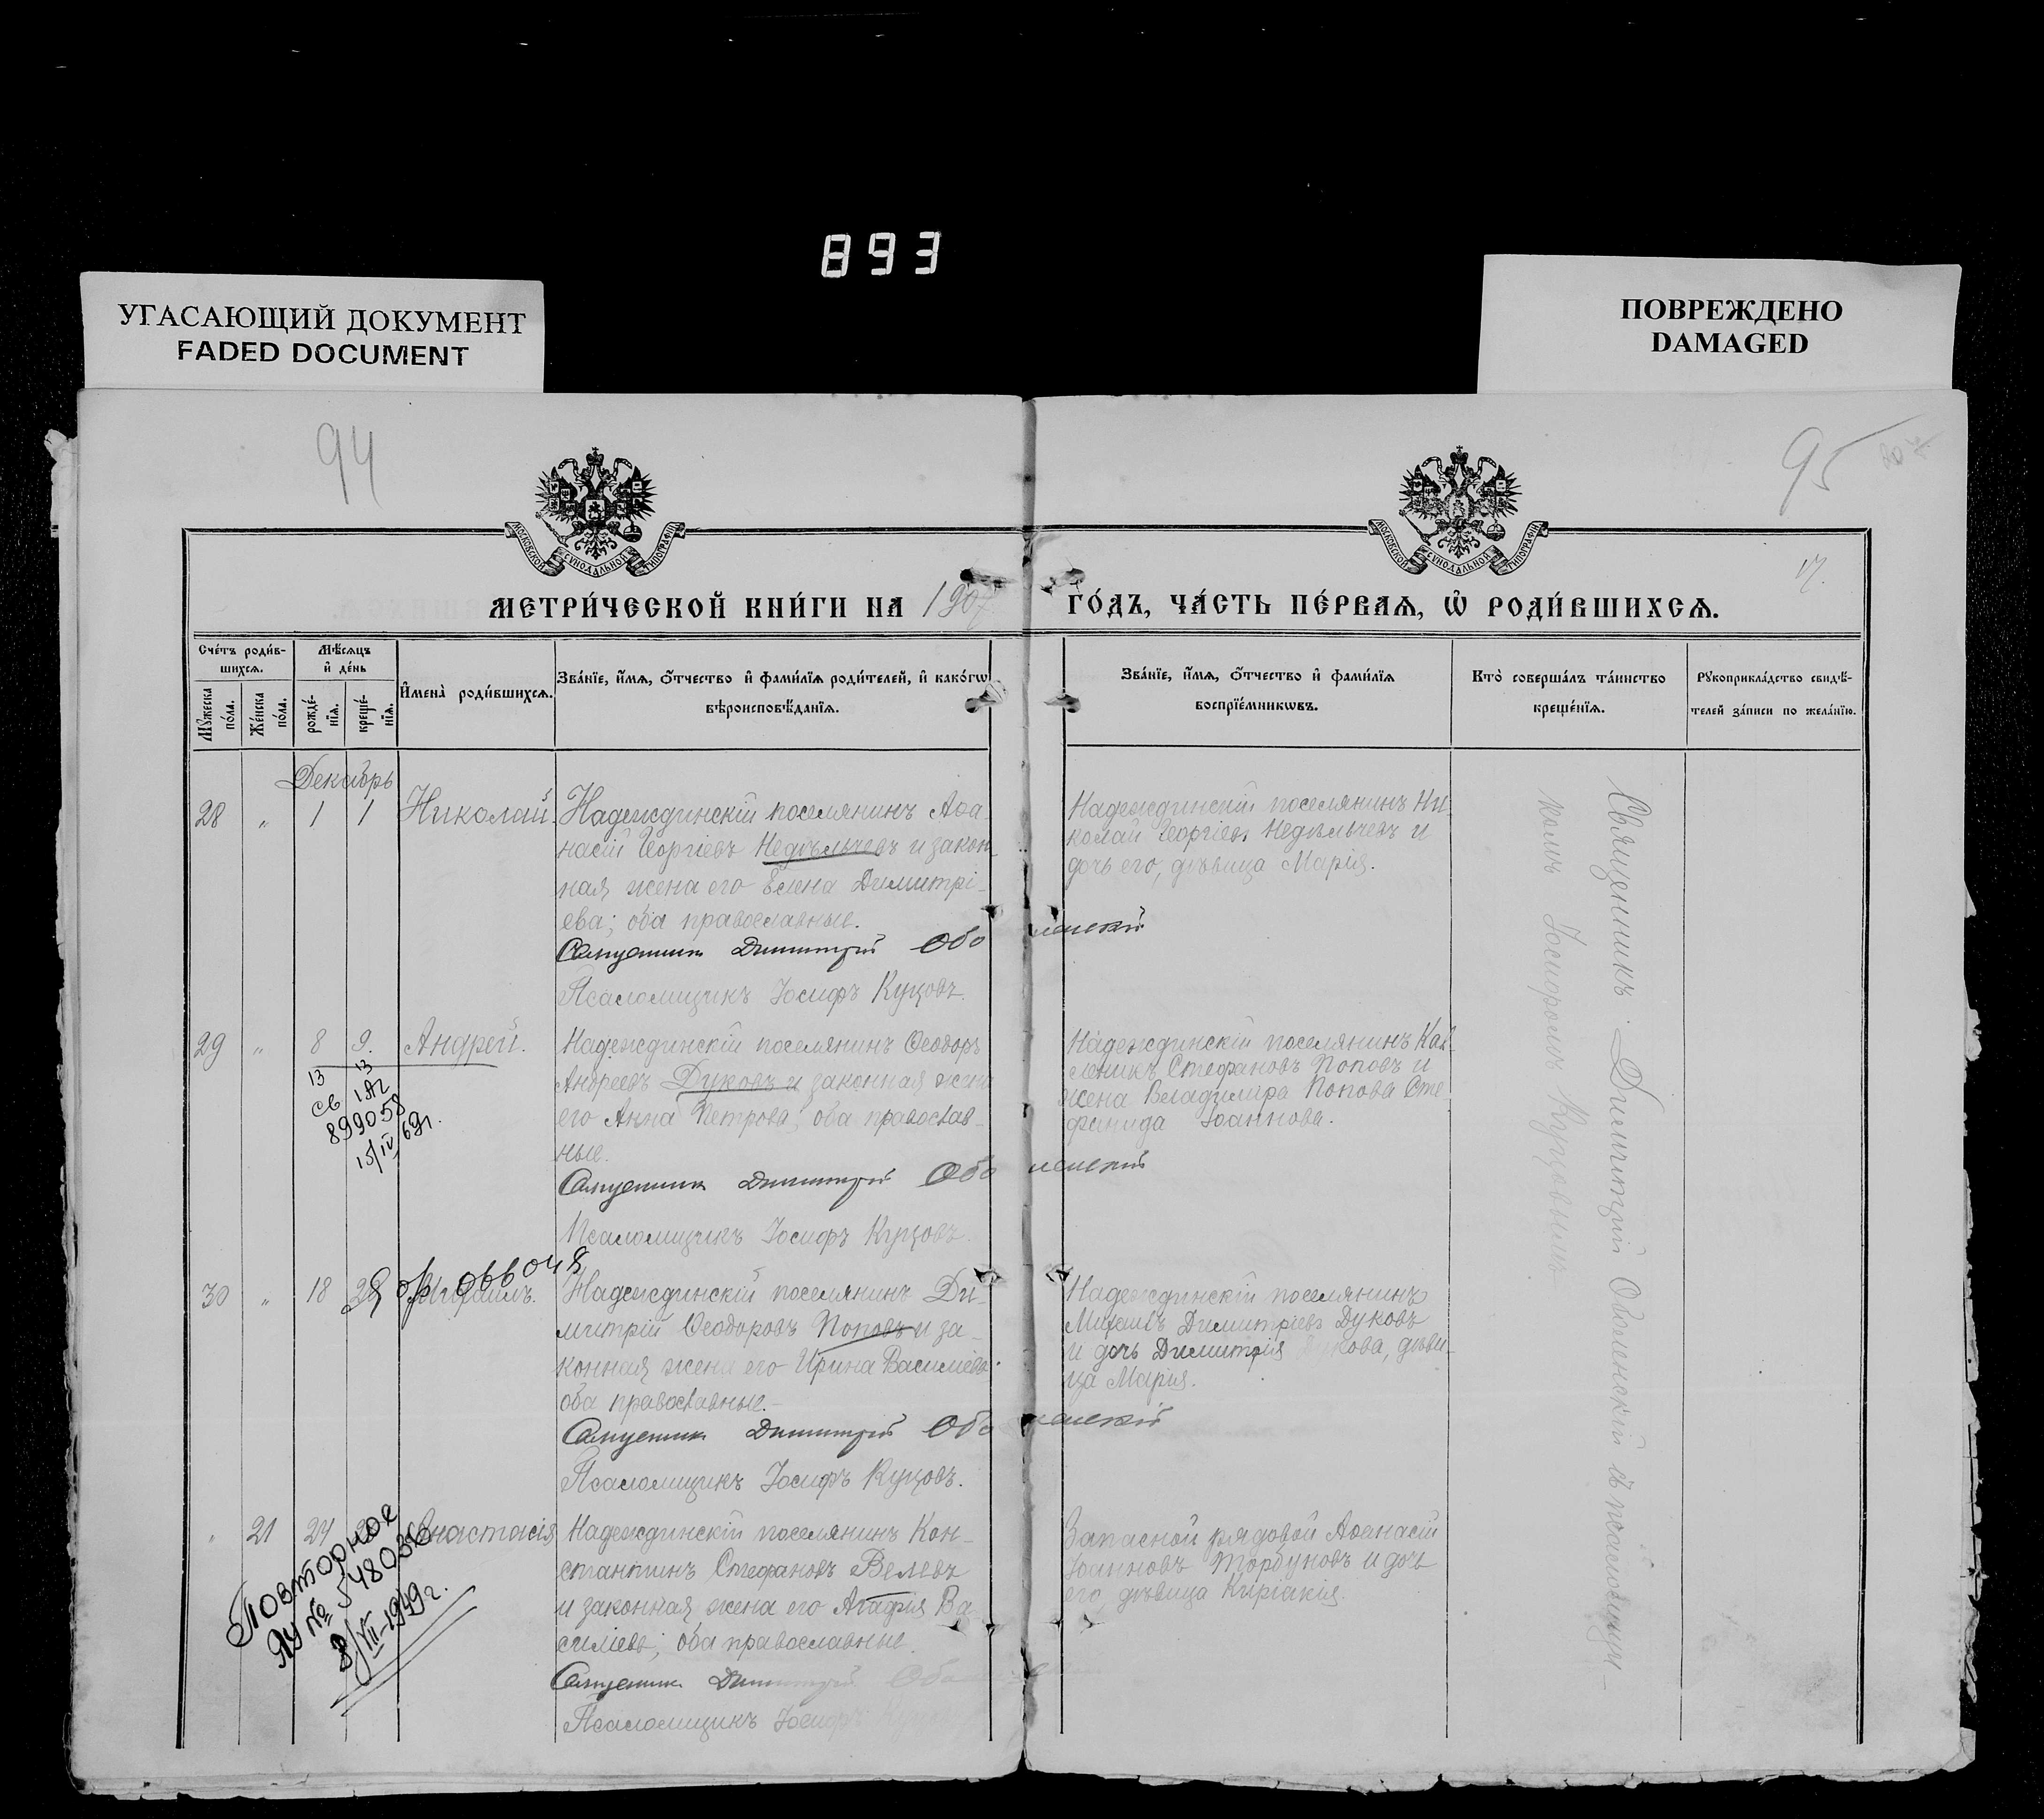 893
УГАСАЮЩИЙ ДОКУМЕНТ
FADED DOCUMENT
ПОВРЕЖДЕНО
DAMAGED
94
95
МОСКОВСКОЙ СѴНОДАЛЬНОЙ ТИПОГРАФІИ
МОСКОВСКОЙ СѴНОДАЛЬНОЙ ТИПОГРАФІИ
17.
МЕТРИ́ЧЕСКОЙ КНИ́ГИ НА 1907 ГО́ДЪ, ЧА́СТЬ ПЕ́РВАѦ, Ѡ҆ РОДИ́ВШИХСѦ.
Сче́тъ роди́в-
шихсѧ.
Мꙋ́жеска по́ла.
Же́нска по́ла.
Мѣ́сѧцъ
и҆ де́нь
рожде́-
нїѧ.
креще́-
нїѧ.
И҆мена̀ роди́вшихсѧ.
Зва́нїе, и҆́мѧ, ѻ҆́тчество и҆ фами́лїѧ роди́телей, и҆ како́гѡ
вѣроисповѣ́данїѧ.
Зва́нїе, и҆́мѧ, ѻ҆́тчество и҆ фами́лїѧ
воспрїе́мникѡвъ.
Кто̀ соверша́лъ та́инство
креще́нїѧ.
Рꙋкоприкла́дство свидѣ́-
телей за́писи по жела́нїю.
Декабрь
28 „ 1 1 Николай.
Надеждинскій поселянинъ Аѳа-
насій Георгіевъ Недѣльчевъ и закон-
ная жена его Елена Димитрі-
ева; оба православные.
Священникъ Димитрій Оболенскій
Псаломщикъ Іосифъ Куцовъ.
Надеждинскій поселянинъ Ни-
колай Георгіевъ Недѣльчевъ и
дочь его, дѣвица Марія.
29 „ 8 9. Андрей.
13 13
св
899058
15/IV 69г.
Надеждинскій поселянинъ Ѳеодоръ
Андреевъ Дуковъ и законная жена
его Анна Петрова; оба православ-
ные.
Священникъ Димитрій Оболенскій
Псаломщикъ Іосифъ Куцовъ.
Надеждинскій поселянинъ
Стефановъ Поповъ и
жена Владиміра Попова Сте-
фанида Іоаннова.
30 „ 18 Михаилъ.
Надеждинскій поселянинъ Ди-
митрій Ѳеодоровъ Поповъ и за-
конная жена его Ирина Василіева
оба православные.
Священникъ Димитрій Оболенскій
Псаломщикъ Іосифъ Куцовъ.
Надеждинскій поселянинъ
Михаилъ Димитріевъ Дуковъ
и дочь Димитрія Дукова, дѣви-
ца Марія.
„ 21 24 Анастасія
Повторное
ЯУ №
8/VII-1949 г.
Надеждинскій поселянинъ Кон-
стантинъ Стефановъ Велевъ
и законная жена его Агафія Ва-
силіева; оба православные.
Священникъ Димитрій
Псаломщикъ Іосифъ
Запасной рядовой Аѳанасій
Іоанновъ Торбуновъ и дочь
его, дѣвица Киріакія.
Священникъ Димитрій Оболенскій съ псаломщи-
комъ Іосифомъ Куцовымъ